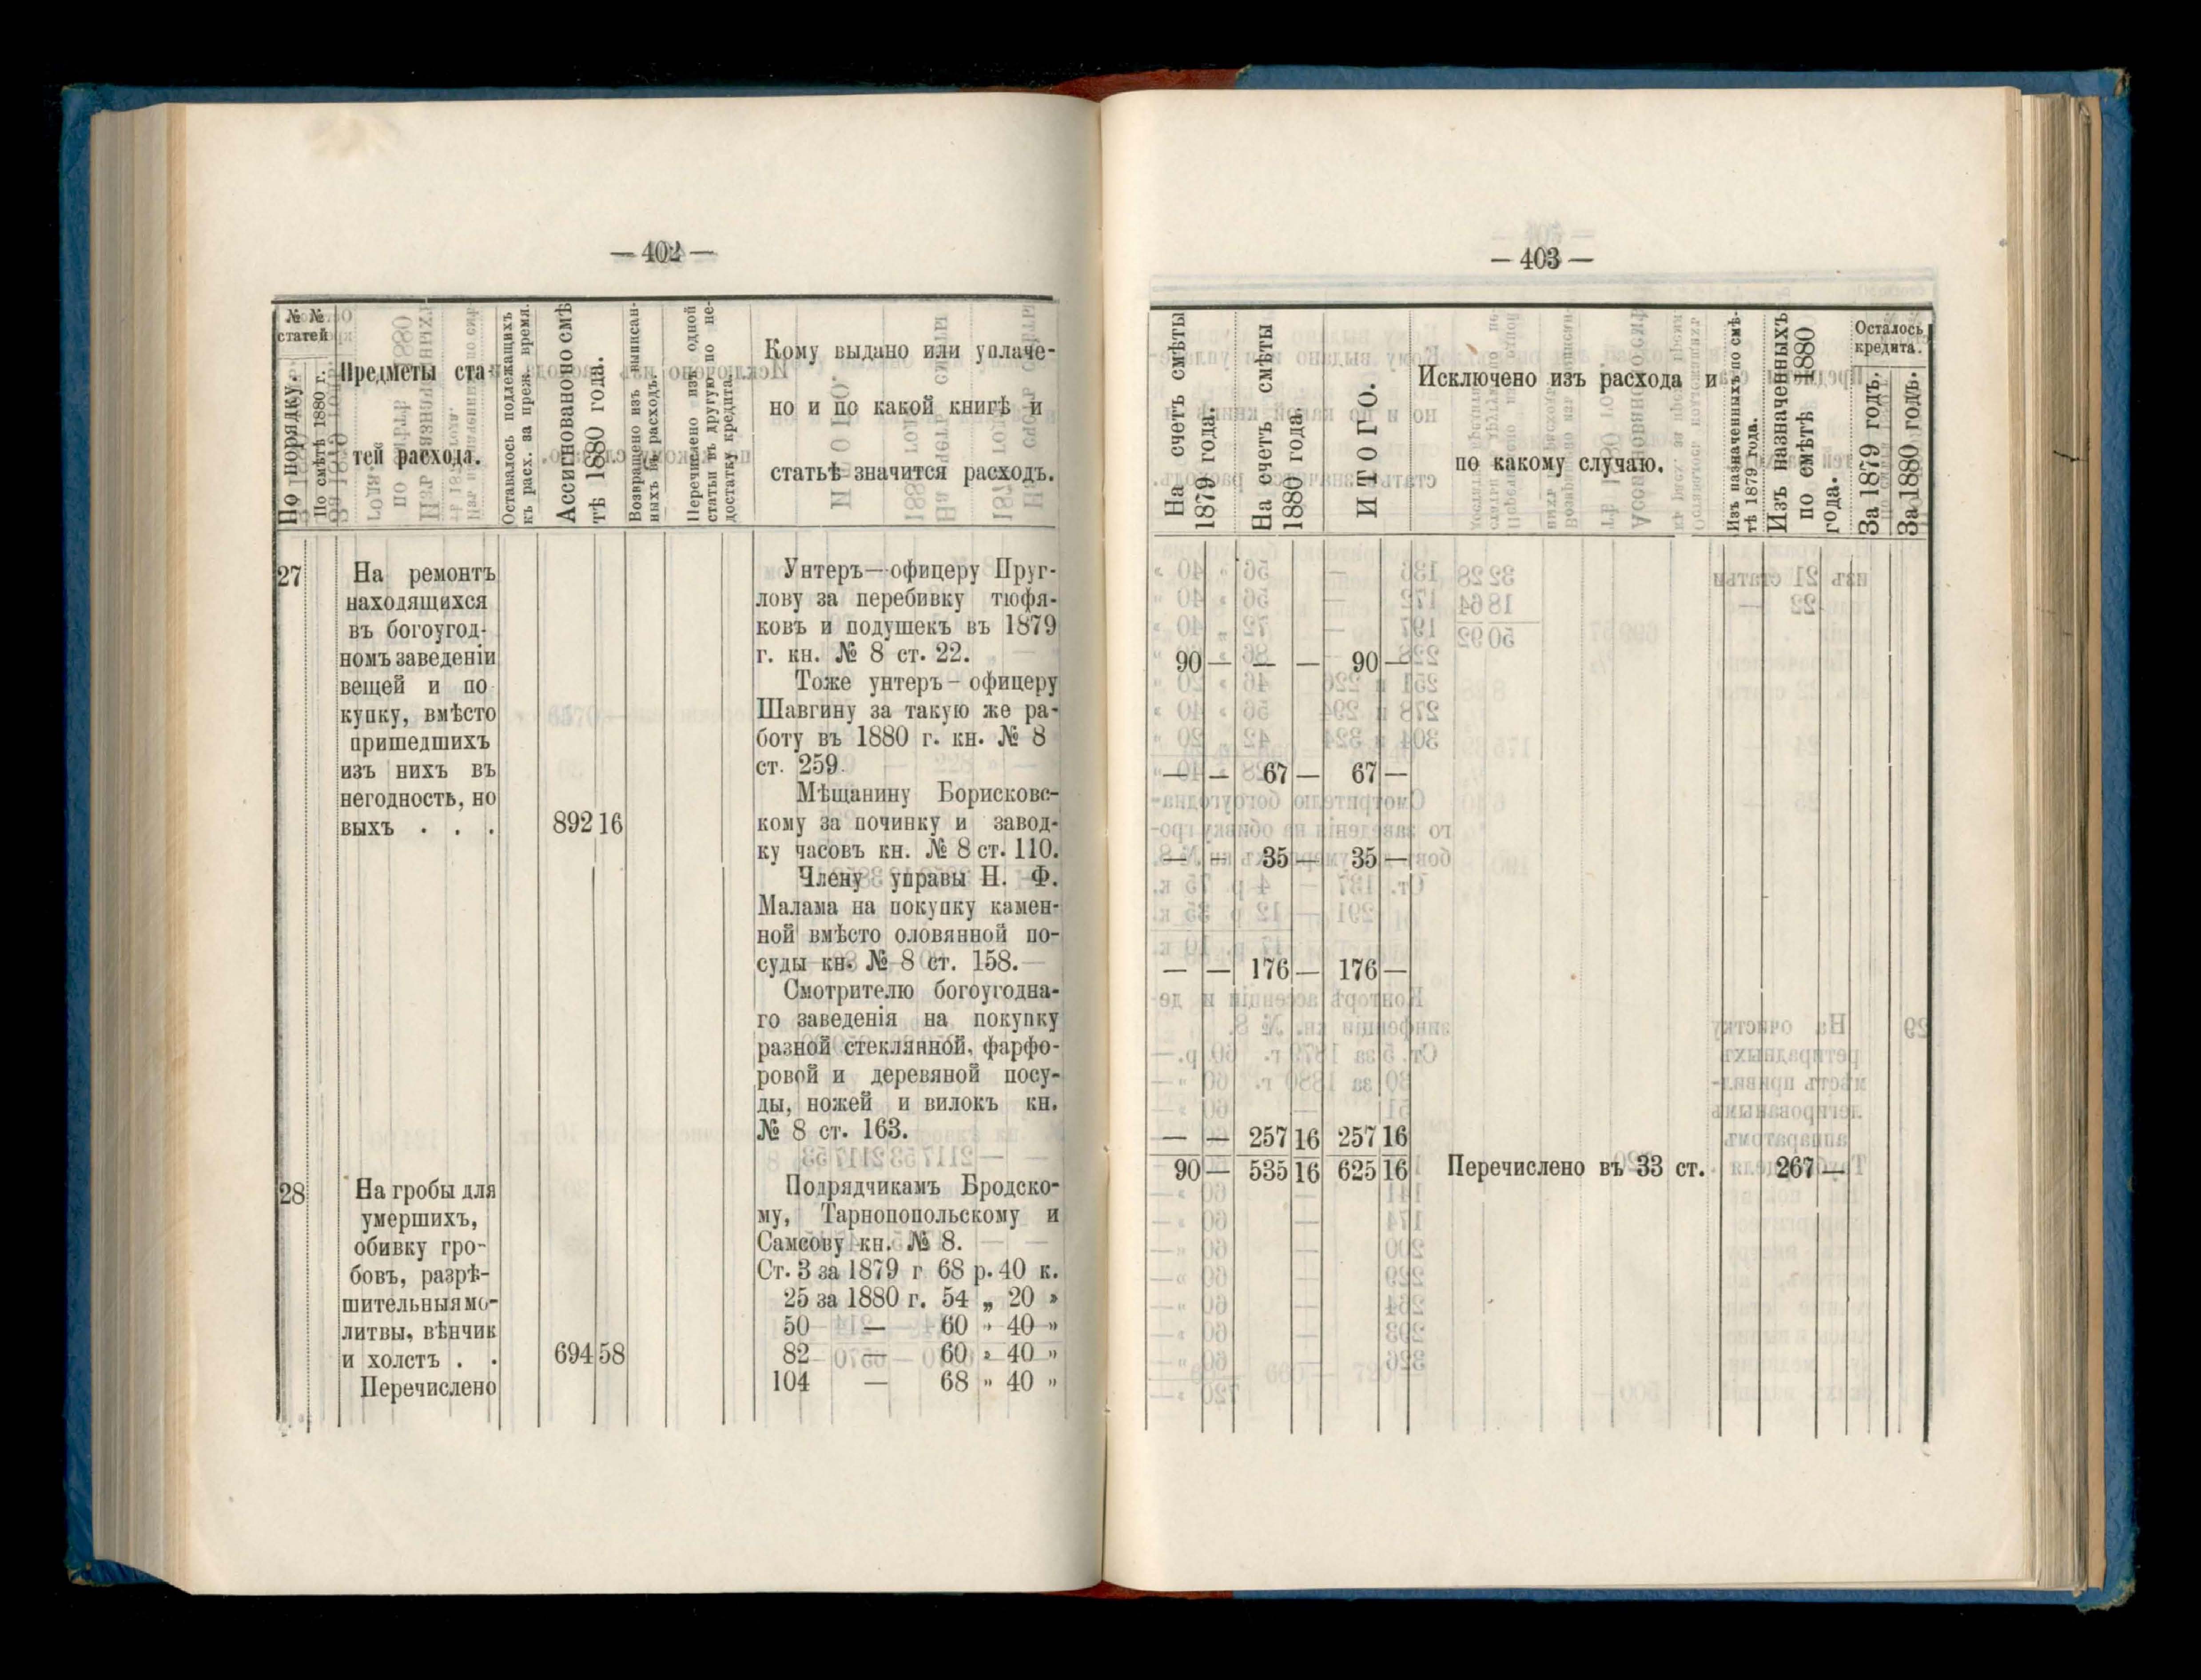 — 402 —
№ №
статей
По порядку.
По смѣтѣ 1880 г.
Предметы ста-
тей расхода.
Оставалось подлежащихъ
къ расх. за преж. время.
Ассигновано по смѣ
тѣ 1880 года.
Возвращено изъ выписан-
ныхъ въ расходъ.
Перечислено изъ одной
статьи въ другую по не-
достатку кредита.
Кому выдано или уплаче-
но и по какой книгѣ и
статьѣ значится расходъ.
27
На ремонтъ
находящихся
въ богоугод-
номъ заведеніи
вещей и по
купку, вмѣсто
пришедшихъ
изъ нихъ въ
негодность, но
выхъ . . . 892 16
Унтеръ—офицеру Пруг-
лову за перебивку тюфя-
ковъ и подушекъ въ 1879
г. кн. № 8 ст. 22.
Тоже унтеръ-офицеру
Шавгину за такую же ра-
боту въ 1880 г. кн. № 8
ст. 259.
Мѣщанину Борисковс-
кому за починку и завод-
ку часовъ кн. № 8 ст. 110.
Члену управы Н. Ф.
Малама на покупку камен-
ной вмѣсто оловянной по-
суды кн. № 8 ст. 158.
Смотрителю богоугодна-
го заведенія на покупку
разной стеклянной, фарфо-
ровой и деревяной посу-
ды, ножей и вилокъ кн.
№ 8 ст. 163.
28
На гробы для
умершихъ,
обивку гро-
бовъ, разрѣ-
шительныя мо-
литвы, вѣнчик
и холстъ . . 694 58
Перечислено
Подрядчикамъ Бродско-
му, Тарнопопольскому и
Самсову кн. № 8.
Ст. 3 за 1879 г 68 р. 40 к.
25 за 1880 г. 54 „ 20 »
50 — 60 » 40 »
82 — 60 » 40 »
104 — 68 » 40 »
— 403 —
На счетъ смѣты
1879 года.
На счетъ смѣты
1880 года.
ИТОГО.
Исключено изъ расхода и
по какому случаю.
Изъ назначенныхъ по смѣ-
тѣ 1879 года.
Изъ назначенныхъ
по смѣтѣ 1880
года.
Осталось
кредита.
За 1879 годъ.
За 1880 годъ.
90 — — — 90 —
— — 67 — 67 —
— — 35 — 35 —
— — 176 — 176 —
— — 257 16 257 16
90 — 535 16 625 16 Перечислено въ 33 ст. 267 —